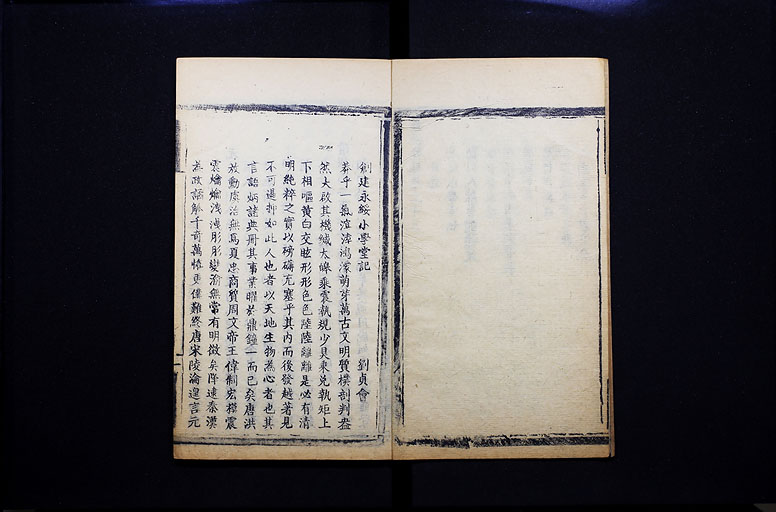 創建永綏小學堂記 劉貞會
莽乎一氣渲淖鴻濛萌芽萬古文明賢樸剖判盡
然大啟其機緘太皞乘震執規少昊乘兌執矩上
下相嘔黃白交眩形形色色陸陸離離是必有清
明純粹之實以磅礴充塞乎其內而後發越著見
不可遏抑如此人也者以天地生物為心者也其
言語炳諸典冊其事業曜於鼎鐘一而已矣唐洪
放勳虞治無為夏忠商質周文帝王偉制宏模震
震爚爚洩洩彤彤變渝無常有明徵矣降逮秦漢
為政語觚千奇萬怪更僕難終唐宋陵淪遑言元